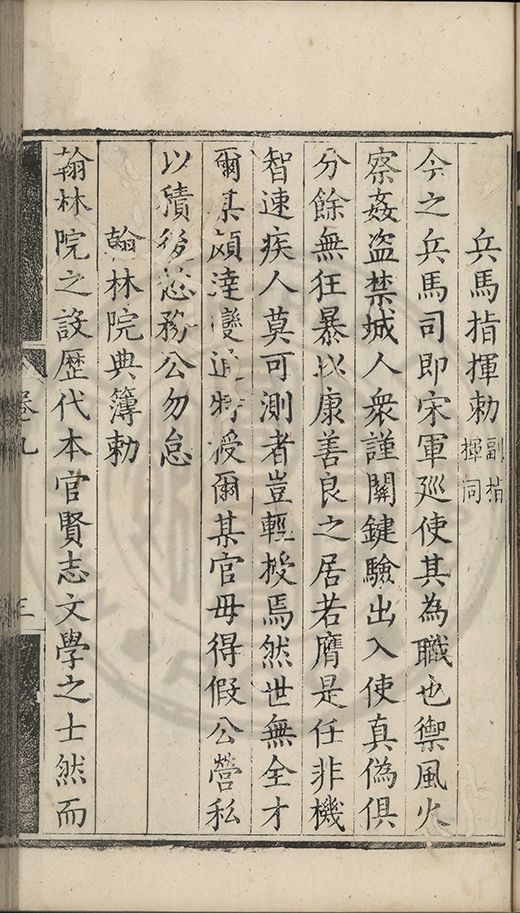 兵馬指揮勅副指揮同
今之兵馬司即宋軍廵使其為職也禦風火
察姦盗禁城人衆謹關鍵驗出入使真偽俱
分餘無狂暴以康善良之居若膺是任非機
智速疾人莫可測者豈輕授焉然世無全才
爾某頗達變通特授爾某官毋得假公營私
以積後愆務公勿怠
翰林院典簿勅
翰林院之設歴代本官賢志文學之士然而
卷九
三